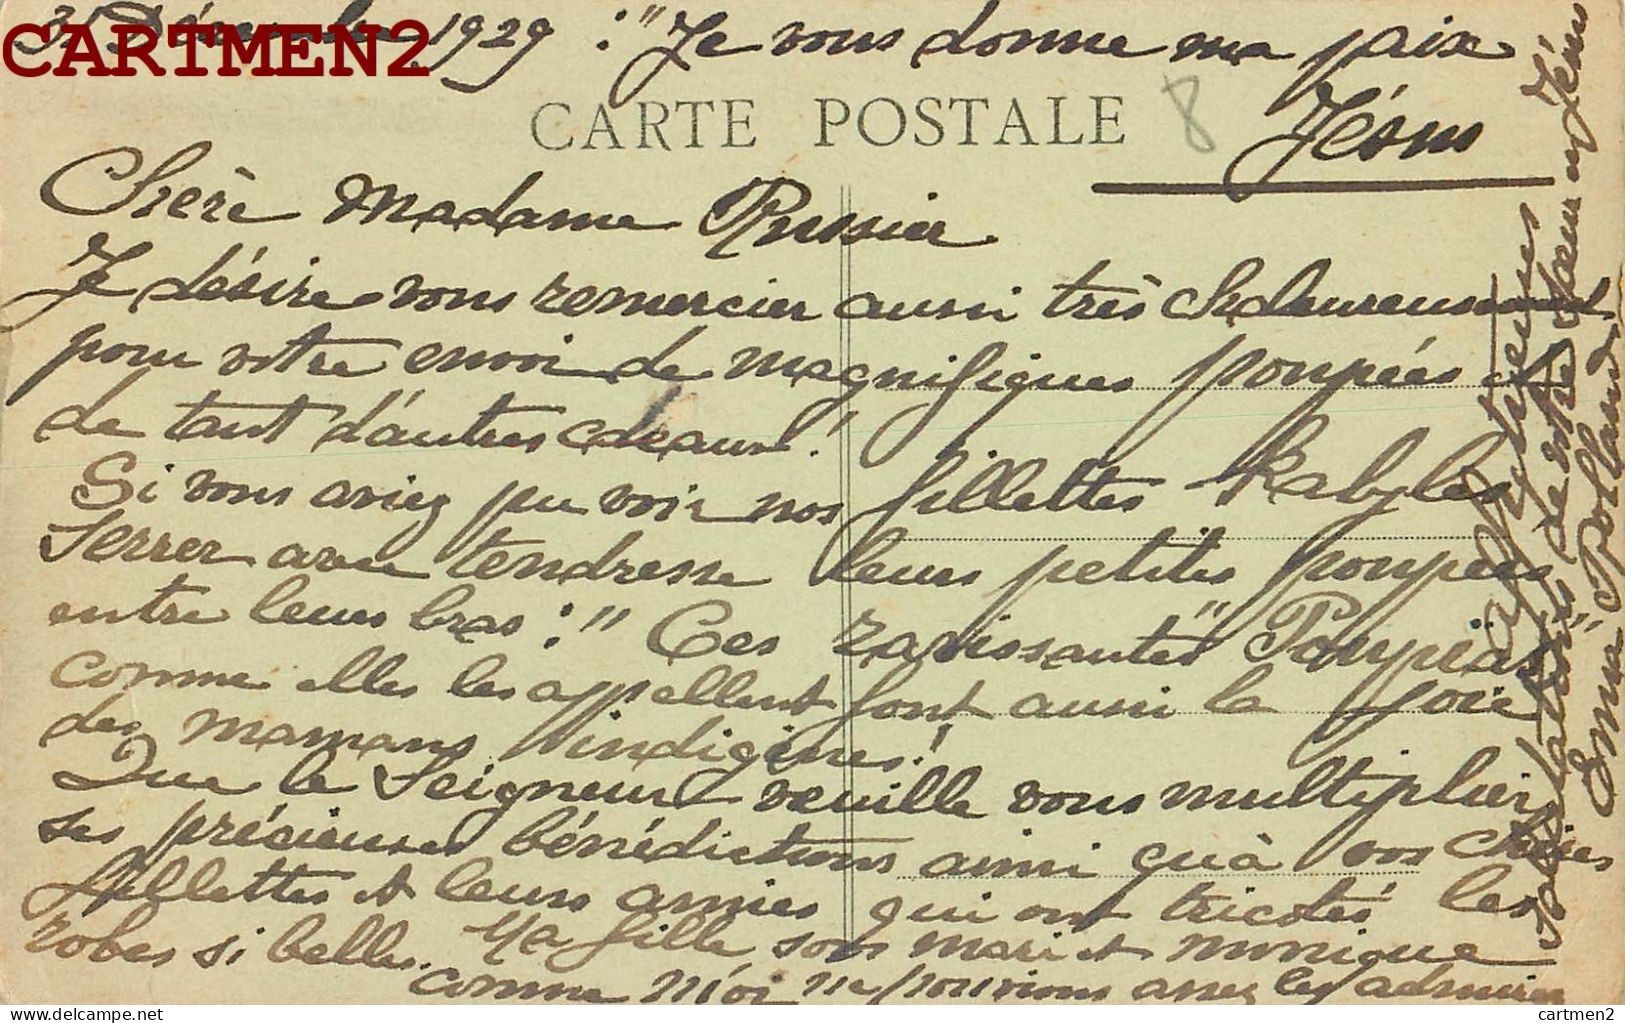 CARTMEN2
31 Décembre 1929 : "Je vous donne ma paix
CARTE POSTALE 8
Jésus
Chère Madame Russier
Je désire vous remercier aussi très chaleureusement
pour votre envoi de magnifiques poupées et
de tant d'autres cdeaux!
Si vous aviez pu voir nos fillettes Kabyles
serrer avec tendresse leurs petites poupées
entre leurs bras : " Ces ravissantes" Poupïas
comme elles les appellent font aussi la joie
des mamans indigènes!
Que le Seigneur veuille vous multiplier
ses précieuses bénédictions ainsi qu'à vos chères
fillettes et leurs amies qui ont tricoté les
robes si belles. Ma fille, son mari et monique
comme moi ne pouvions assez les admirer
affectueuses
salutations de votre sœur en Jésus
Emma Rolland
cartmen2